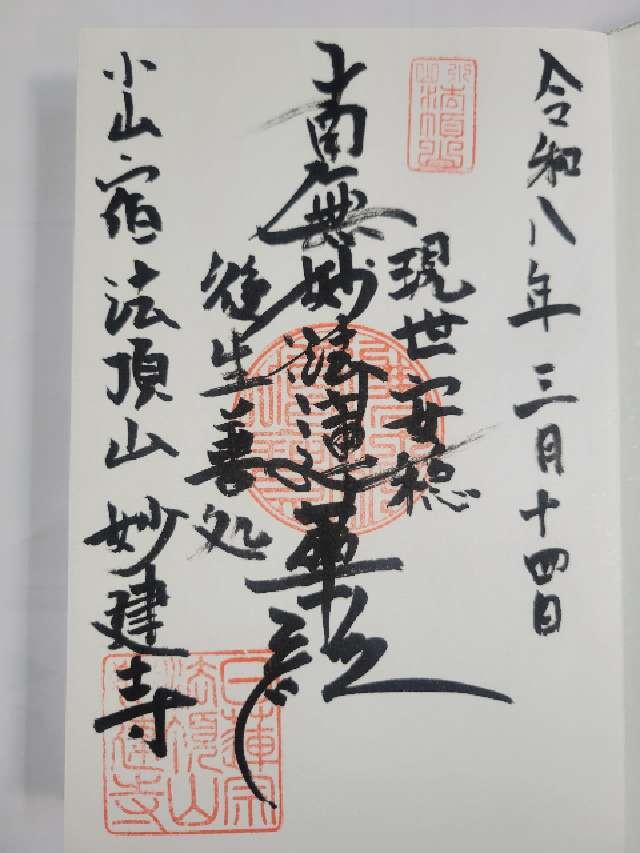 令和八年三月十四日
現世安穏
南無妙法蓮華経
後生善処
小山宿法頂山妙建寺
法頂山
日蓮宗
法頂山
妙建寺